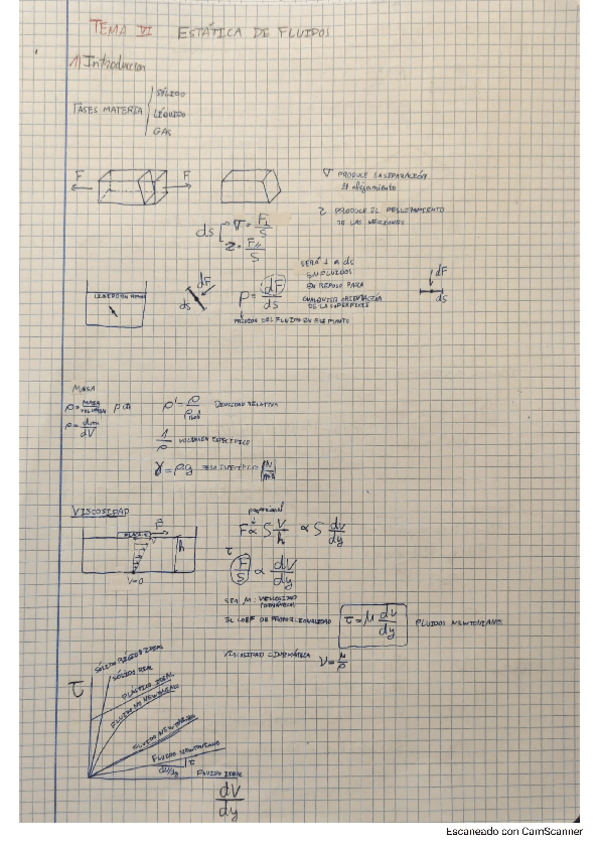 TEMA VI ESTÁTICA DE FLUIDOS
1) Introduccion
FASES MATERIA
SÓLIDO
LÍQUIDO
GAS
F F
∇ PRODUCE LA SEPARACIÓN
El alejamiento
τ PRODUCE EL
DE LAS
ds
σ = F⊥/S
τ = F∥/S
SERÁ ⊥ A ds
EN FLUIDOS
EN REPOSO PARA
CUALQUIER ORIENTACIÓN
DE LA SUPERFICIE
dF
ds
p = dF/ds
dF
ds
PRESIÓN DEL FLUIDO EN ESE PUNTO
MASA
ρ = MASA/VOLUMEN
ρ = dm/dV
ρ' = ρ/ρ DENSIDAD RELATIVA
1/ρ VOLUMEN ESPECÍFICO
γ = ρg PESO ESPECÍFICO
VISCOSIDAD
F
h
V=0
proporcional
F ∝ S V/h ∝ S dv/dy
τ
F/S ∝ dV/dy
SEA μ: VISCOSIDAD
EL COEF DE PROPORCIONALIDAD
τ = μ dv/dy
FLUIDOS NEWTONIANO
VISCOSIDAD CINEMÁTICA
ν = μ/ρ
τ
SÓLIDO RÍGIDO IDEAL
SÓLIDO REAL
PLÁSTICO IDEAL
FLUIDO NO NEWTONIANO
FLUIDO NEWTONIANO
FLUIDO NEWTONIANO
τ
dV/dy
FLUIDO IDEAL
dV/dy
Escaneado con CamScanner